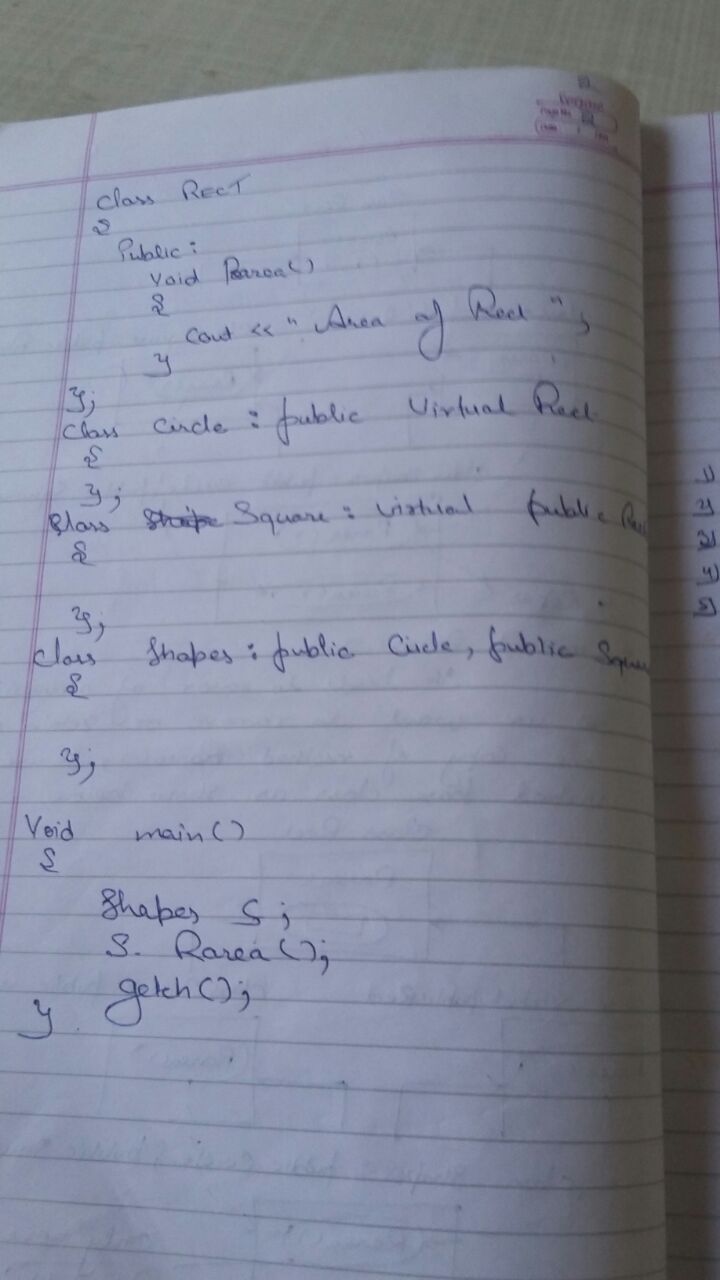 class RECT
{
Public:
Void Rarea()
{
Cout << " Area of Rect ";
}
};
class Circle : public Virtual Rect
{
};
Class Square : virtual public
{
};
Class Shapes : public Circle, public Square
{
};
Void main()
{
Shapes S;
S. Rarea();
getch();
}
1)
2)
3)
4)
5)